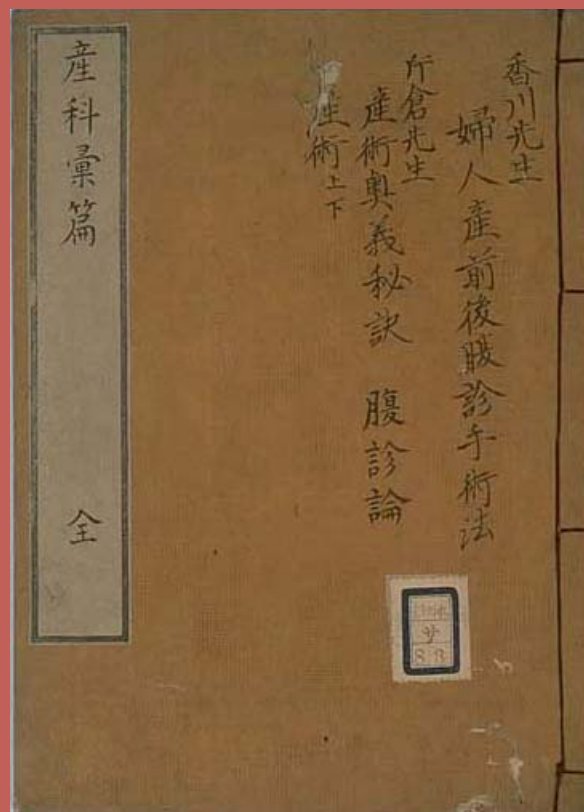 香川先生
婦人産前後腹診手術法
片倉先生
産術奥義秘訣 腹診論
産術上下
産科彙篇 全
サ